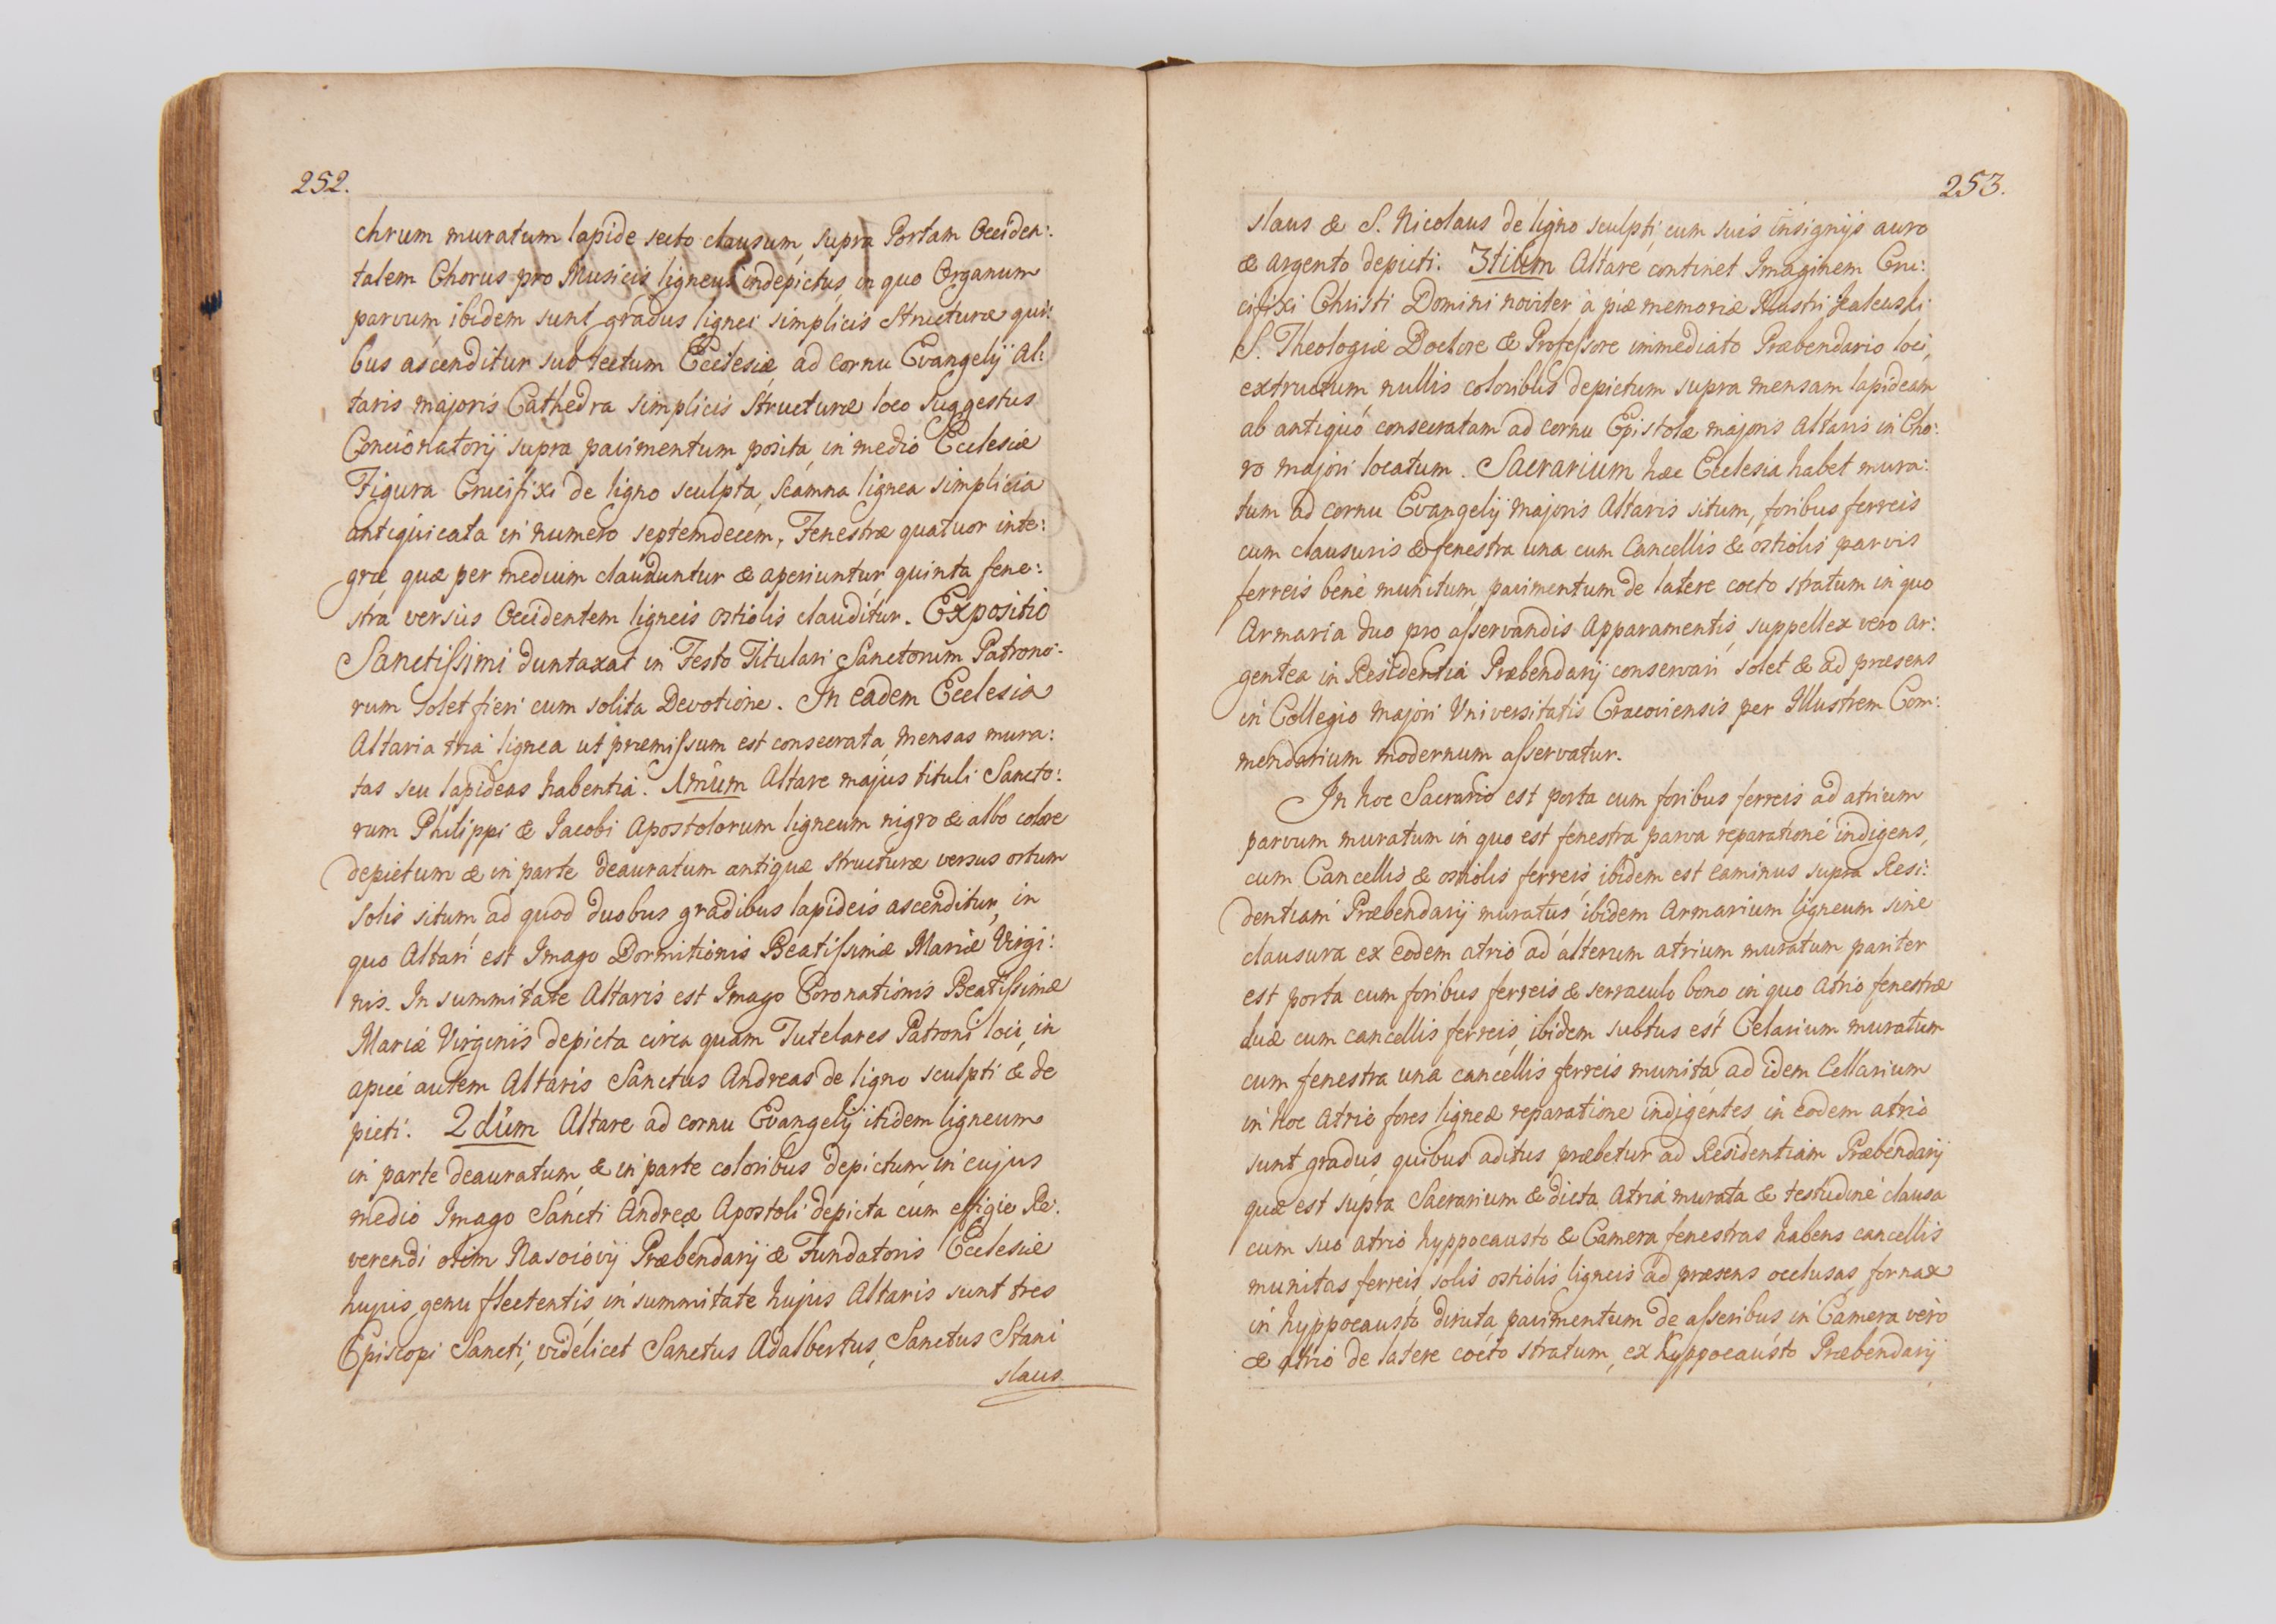 252.
chrum muratum lapide secto clausum, supra Portam Occiden:
talem Chorus pro Musicis ligneus indepictus, in quo Organum
parvum, ibidem sunt gradus lignei simplicis Structuræ qui:
bus ascenditur sub tectum Ecclesiæ, ad cornu Evangelij Al:
taris majoris Cathedra simplicis Structuræ loco Suggestus
Concionatorij supra pavimentum posita, in medio Ecclesiæ
Figura Crucifixi de ligno sculpta, Scamna lignea simplicia
antiquicata in numero septemdecem, Fenestræ quatuor inte:
græ quæ per medium clauduntur & aperiuntur, quinta fene:
stra versus Occidentem ligneis ostiolis clauditur. Expositio
Sanctissimi duntaxat in Festo Titulari Sanctorum Patrono:
rum Solet fieri cum solita Devotione. In eadem Ecclesia
Altaria tria lignea ut præmissum est consecrata, Mensas mura:
tas seu lapideas habentia. 1mum Altare majus tituli Sancto:
rum Philippi & Jacobi Apostolorum ligneum nigro & albo colore
depictum & in parte deauratum antiquæ structuræ versus ortum
Solis situm, ad quod duobus gradibus lapideis ascenditur, in
quo Altari est Imago Dormitionis Beatissimæ Mariæ Virgi:
nis. In summitate Altaris est Imago Coronationis Beatissimæ
Mariæ Virginis depicta circa quam Tutelares Patroni loci, in
apice autem Altaris Sanctus Andreas de ligno sculpti & de
picti. 2dum Altare ad cornu Evangelij itidem ligneum
in parte deauratum, & in parte coloribus depictum, in cujus
medio Imago Sancti Andreæ Apostoli depicta cum effigie Re:
verendi olim Præbendarij & Fundatoris Ecclesiæ
hujus genu flectentis, in summitate hujus Altaris sunt tres
Episcopi Sancti, videlicet Sanctus Adalbertus, Sanctus Stani
slaus
253.
slaus & S. Nicolaus de ligno sculpti, cum suis insignijs auro
& argento depicti. 3tium Altare continet Imaginem Cru:
cifixi Christi Domini noviter à piæ memoriæ Illustri
S. Theologiæ Doctore & Professore immediato Præbendario loci,
extructum nullis coloribus depictum supra mensam lapideam
ab antiquo consecratam ad cornu Epistolæ majoris Altaris in Cho:
ro majori locatum. Sacrarium hæc Ecclesia habet mura:
tum ad cornu Evangelij majoris Altaris situm, foribus ferreis
cum clausuris & fenestra una cum Cancellis & ostiolis parvis
ferreis bene munitum, pavimentum de latere cocto stratum in quo
Armaria duo pro asservandis Apparamentis, suppellex vero Ar:
gentea in Residentia Præbendarij conservari solet & ad præsens
in Collegio Majori Universitatis Cracoviensis per Illustrem Com:
mendarium modernum asservatur.
In hoc Sacrario est porta cum foribus ferreis ad atrium
parvum muratum in quo est fenestra parva reparatione indigens,
cum Cancellis & ostiolis ferreis, ibidem est caminus supra Resi:
dentiam Præbendarij muratus ibidem Armarium ligneum sine
clausura ex eodem atrio ad alterum atrium muratum pariter
est porta cum foribus ferreis & serraculo bono, in quo Atrio fenestræ
duæ cum cancellis ferreis, ibidem subtus est Celarium muratum
cum fenestra una cancellis ferreis munita, ad idem Cellarium
in hoc Atrio fores ligneæ reparatione indigentes, in eodem atrio
sunt gradus, quibus aditus præbetur ad Residentiam Præbendarij
quæ est supra Sacrarium & dicta Atria murata & testudine clausa
cum suo atrio hyppocausto & Camera fenestras habens cancellis
munitas ferreis, solis ostiolis ligneis ad præsens occlusas, fornax
in hyppocausto diruta, pavimentum de asseribus, in Camera vero
& atrio de latere cocto stratum, ex hyppocausto Præbendarij